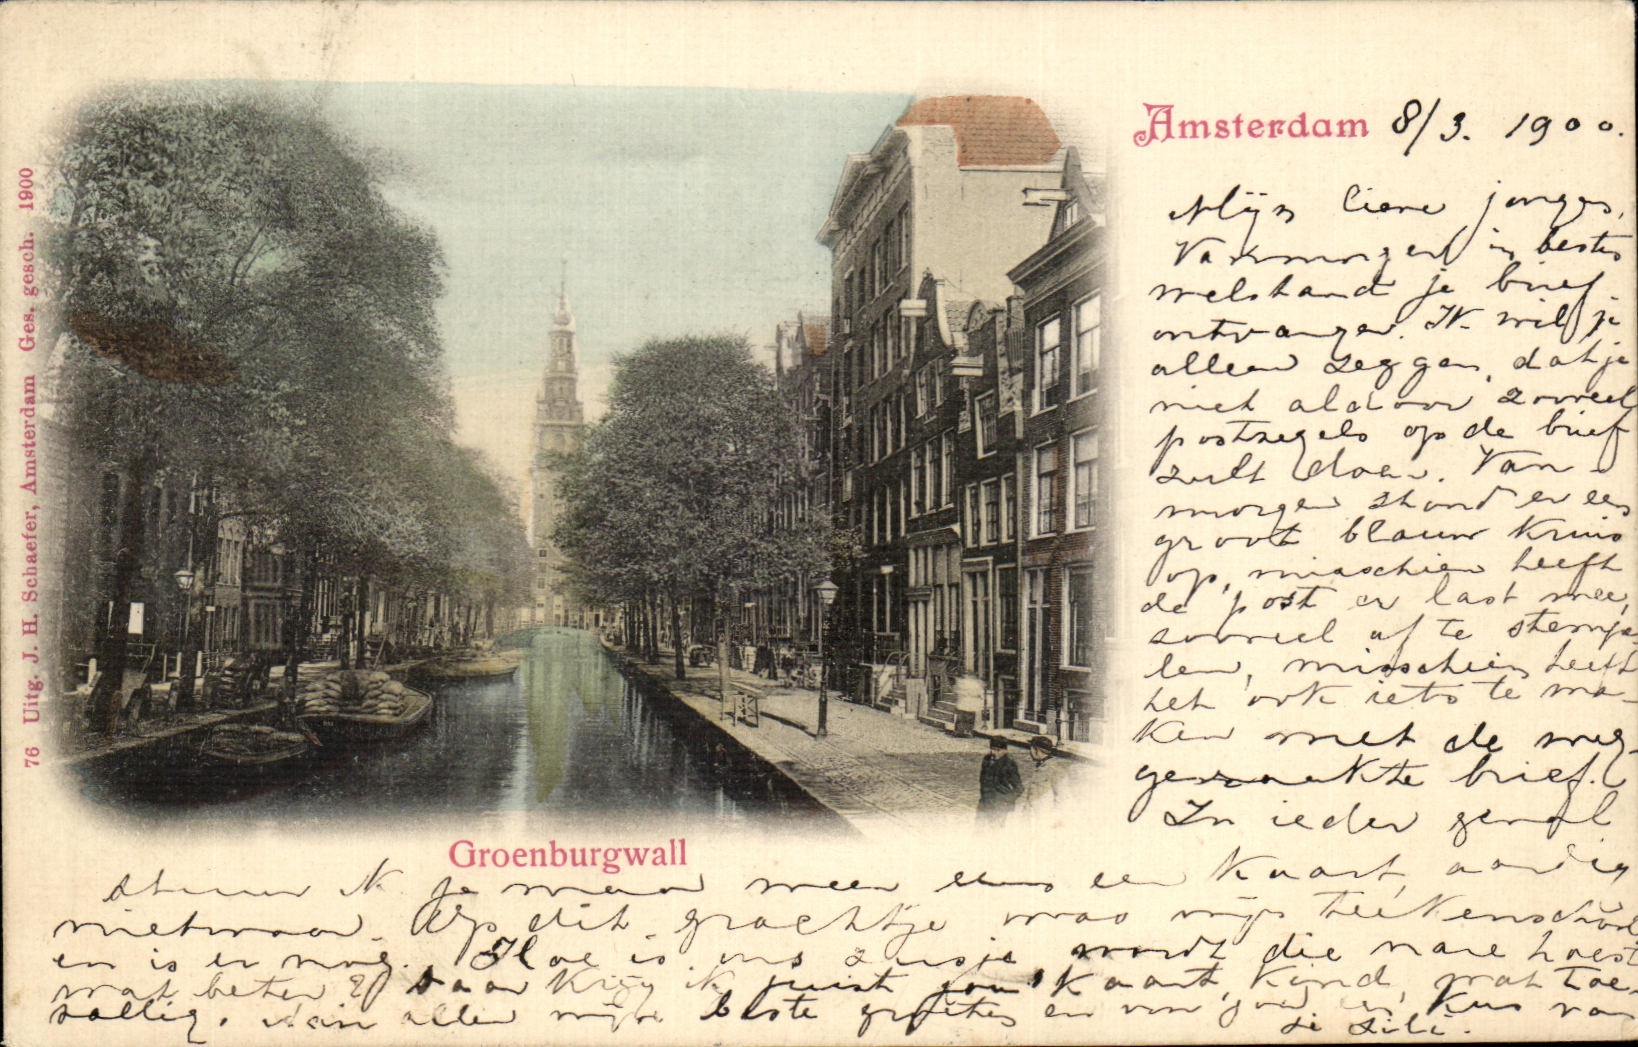 Amsterdam 8/3. 1900.
Mijn lieve jongen,
Vanmorgen in beste
welstand je brief
ontvangen. Ik wil je
alleen zeggen, dat je
niet aldoor zooveel
postzegels op de brief
zult doen. Van
morgen stond er een
groot blauw kruis
op, misschien heeft
de post er last mee,
zooveel af te stempe
len, misschien heeft
het ook iets te ma-
ken met de weg-
geraakte brief.
In ieder geval
stuur ik je maar weer eens een kaart, aardig
nietwaar. Op dit grachtje was mijn teekenschool
en is er nog. Hoe is ons zusje wordt die nare hoest
wat beter? Daar krijg ik juist jou kaart, kind, wat toe-
vallig. Aan allen mijn beste groeten en een kus van
je
Groenburgwall
76 Uitg. J. H. Schaefer, Amsterdam Ges. gesch. 1900